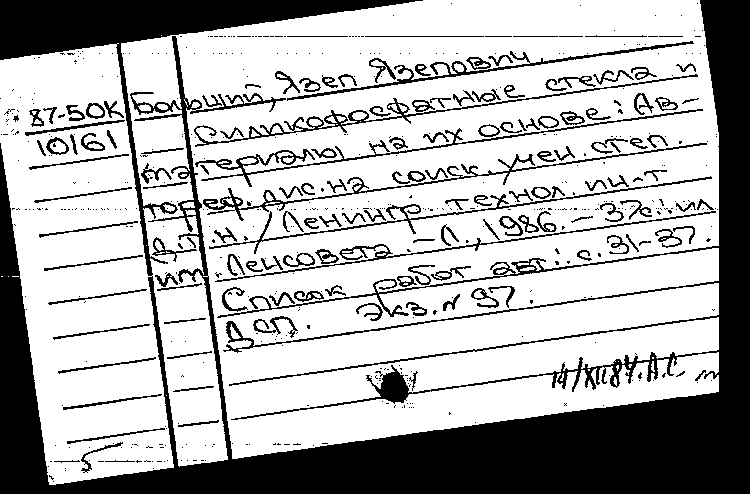 87-50К
10161
Болиший, Язеп Язепович.
Силикофосфатные стекла и
материалы на их основе: Ав-
тореф. дис. на соиск. учен. степ.
д.т.н. / Ленингр. технол. ин-т
им. Ленсовета. - Л., 1986. - 37с.: ил
Список работ авт.: с. 31-37.
Дсп. Экз. N 97.
14/XII 87. А.С.
5